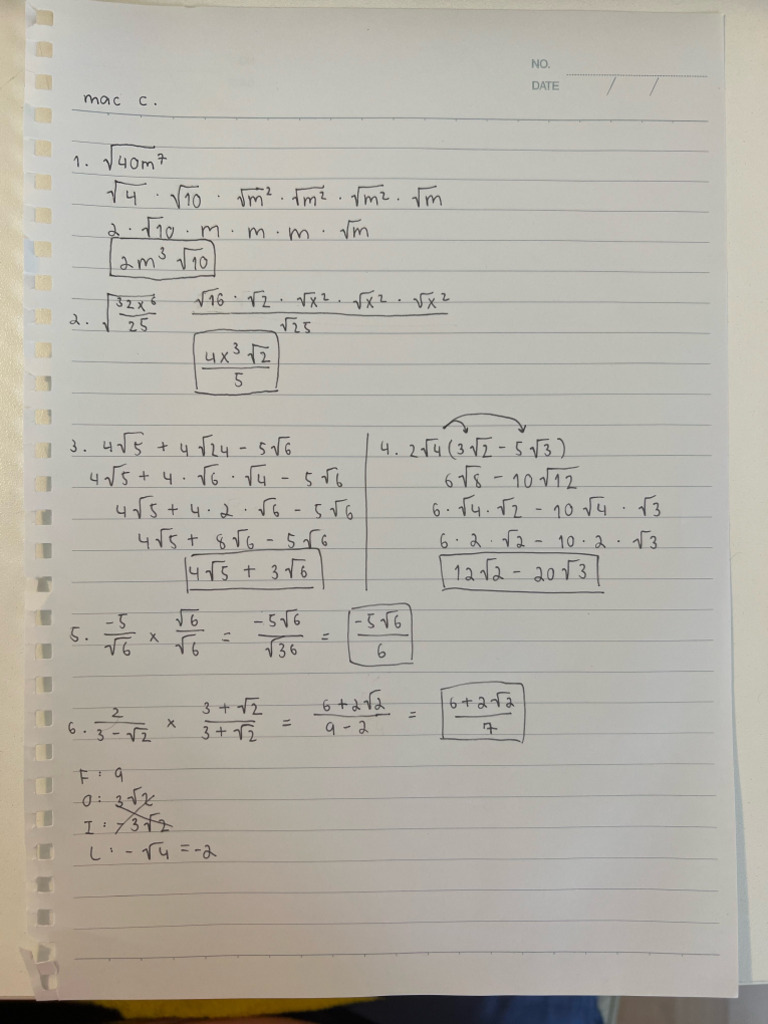 NO.
DATE / /
mac c.
1. √40m⁷
√4 · √10 · √m² · √m² · √m² · √m
2 · √10 · m · m · m · √m
2m³ √10
2. √(32x⁶/25) (√16 · √2 · √x² · √x² · √x²)/√25
(4x³ √2)/5
3. 4√5 + 4√24 - 5√6
4√5 + 4 · √6 · √4 - 5√6
4√5 + 4 · 2 · √6 - 5√6
4√5 + 8√6 - 5√6
4√5 + 3√6
4. 2√4(3√2 - 5√3)
6√8 - 10√12
6 · √4 · √2 - 10√4 · √3
6 · 2 · √2 - 10 · 2 · √3
12√2 - 20√3
5. -5/√6 × √6/√6 = -5√6/√36 = -5√6/6
6. 2/(3-√2) × (3+√2)/(3+√2) = (6+2√2)/(9-2) = (6+2√2)/7
F: 9
O: 3√2
I: -3√2
L: -√4 = -2